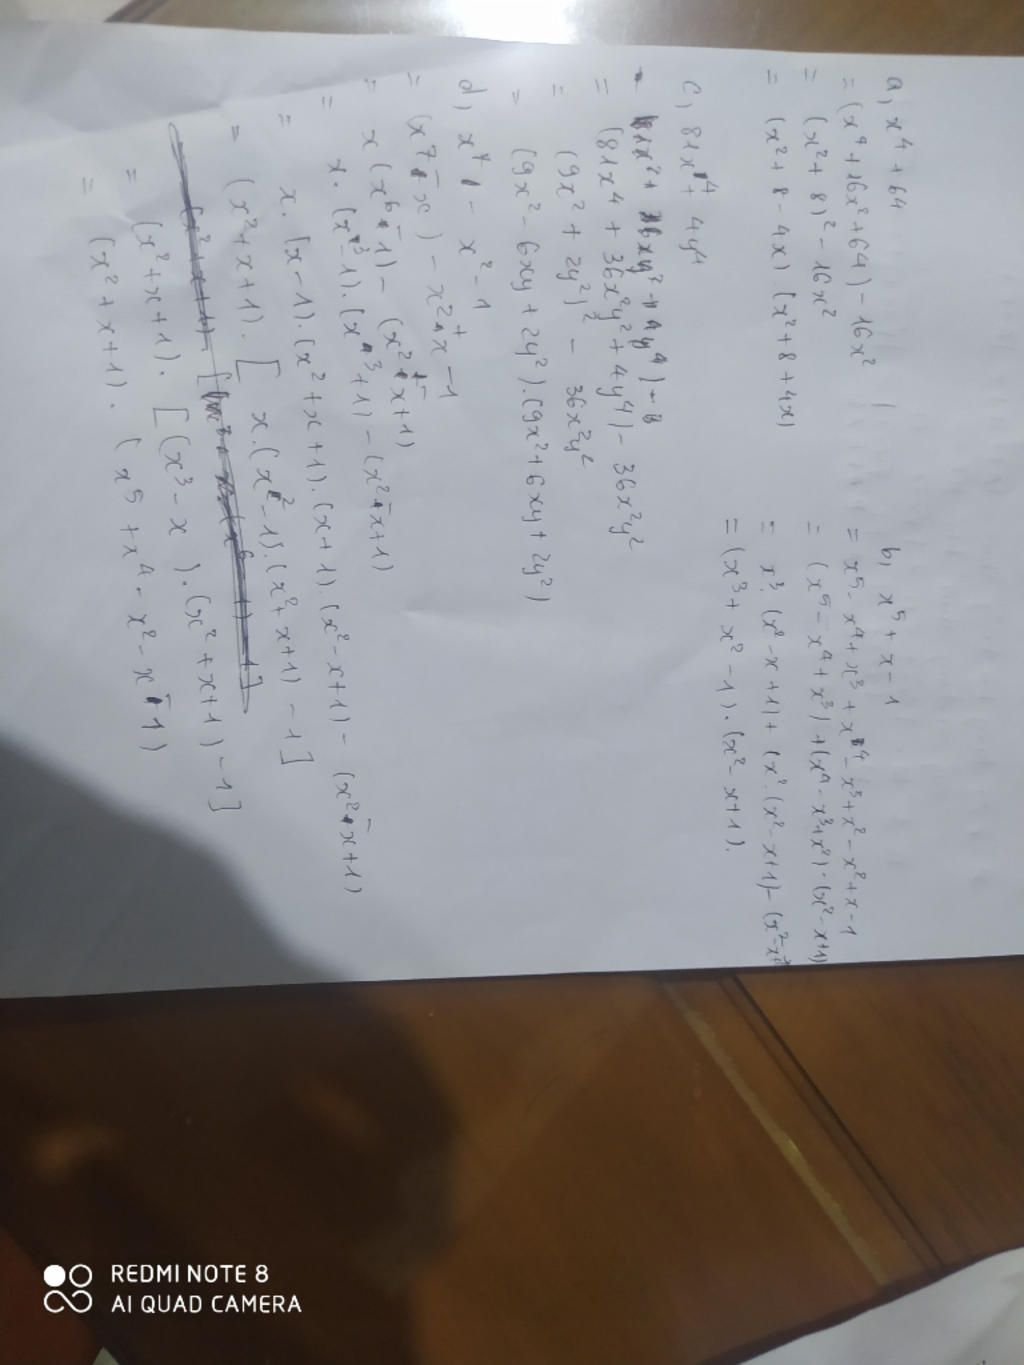 a, x⁴ + 64
= (x⁴ + 16x² + 64) - 16x²
= (x² + 8)² - 16x²
= (x² + 8 - 4x).(x² + 8 + 4x)
b, x⁵ + x - 1
= x⁵ - x⁴ + x³ + x⁴ - x³ + x² - x² + x - 1
= (x⁵ - x⁴ + x³) + (x⁴ - x³ + x²) - (x² - x + 1)
= x³.(x² - x + 1) + (x².(x² - x + 1) - (x² - x +
= (x³ + x² - 1).(x² - x + 1).
c, 81x⁴ + 4y⁴
= (81x⁴ + 36x²y² + 4y⁴) - 36x²y²
= (9x² + 2y²)² - 36x²y²
= (9x² - 6xy + 2y²).(9x² + 6xy + 2y²)
d, x⁷ - x² - 1
= (x⁷ - x) - x² + x - 1
= x(x⁶ - 1) - (x² - x + 1)
= x.(x³ - 1).(x³ + 1) - (x² - x + 1)
= x.(x - 1).(x² + x + 1).(x + 1).(x² - x + 1) - (x² - x + 1)
= (x² + x + 1).[x.(x² - 1).(x² + x + 1) - 1]
= (x² + x + 1).[(x³ - x).(x² + x + 1) - 1]
= (x² + x + 1).(x⁵ + x⁴ - x² - x - 1)
REDMI NOTE 8
AI QUAD CAMERA